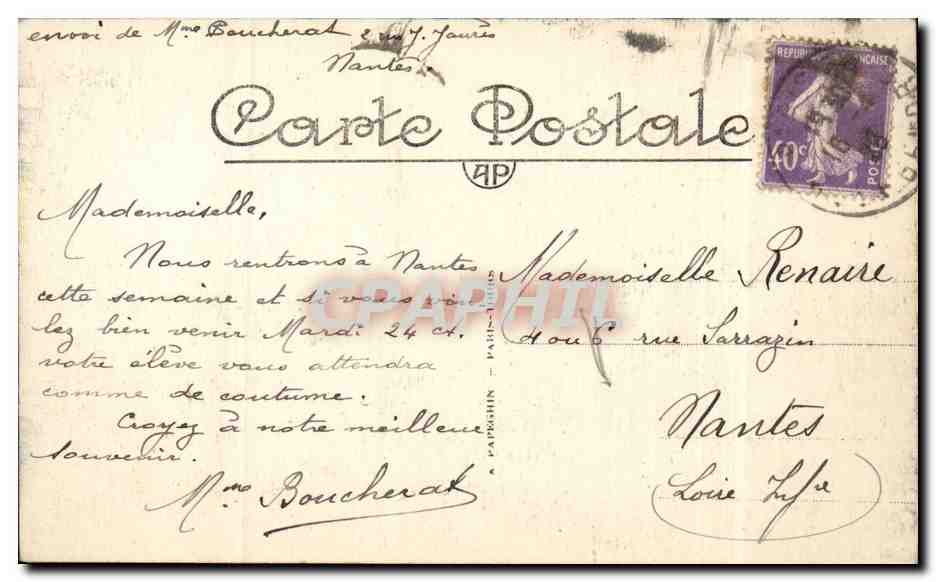 envoi de Mme Boucherat 2 rue J. Jaurès
Nantes.
Carte Postale
AP
REPUBLIQUE FRANÇAISE
40c
POSTES
Mademoiselle,
Nous rentrons à Nantes
cette semaine et si vous vou
lez bien venir Mardi 24 ct.
votre élève vous attendra
comme de coutume.
Croyez à notre meilleur
souvenir.
Mme Boucherat
A PAPEGHIN - PARIS-TOURS
Mademoiselle Renaire
4 ou 6 rue Sarrazin
Nantes
Loire Infre
CPAPHIL